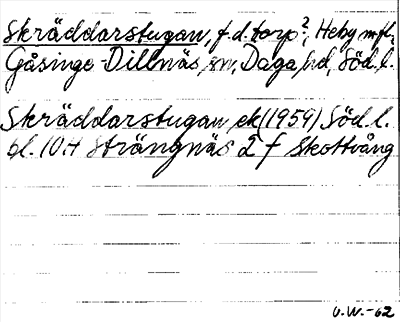 Skräddarstugan, f.d. torp?, Heby m.fl.
Gåsinge-Dillnäs, sn, Daga hd, Söd. l.
Skräddarstugan ek (1959) Söd. l.
bl. 10H Strängnäs 2 f Skottvång
U.W.-62